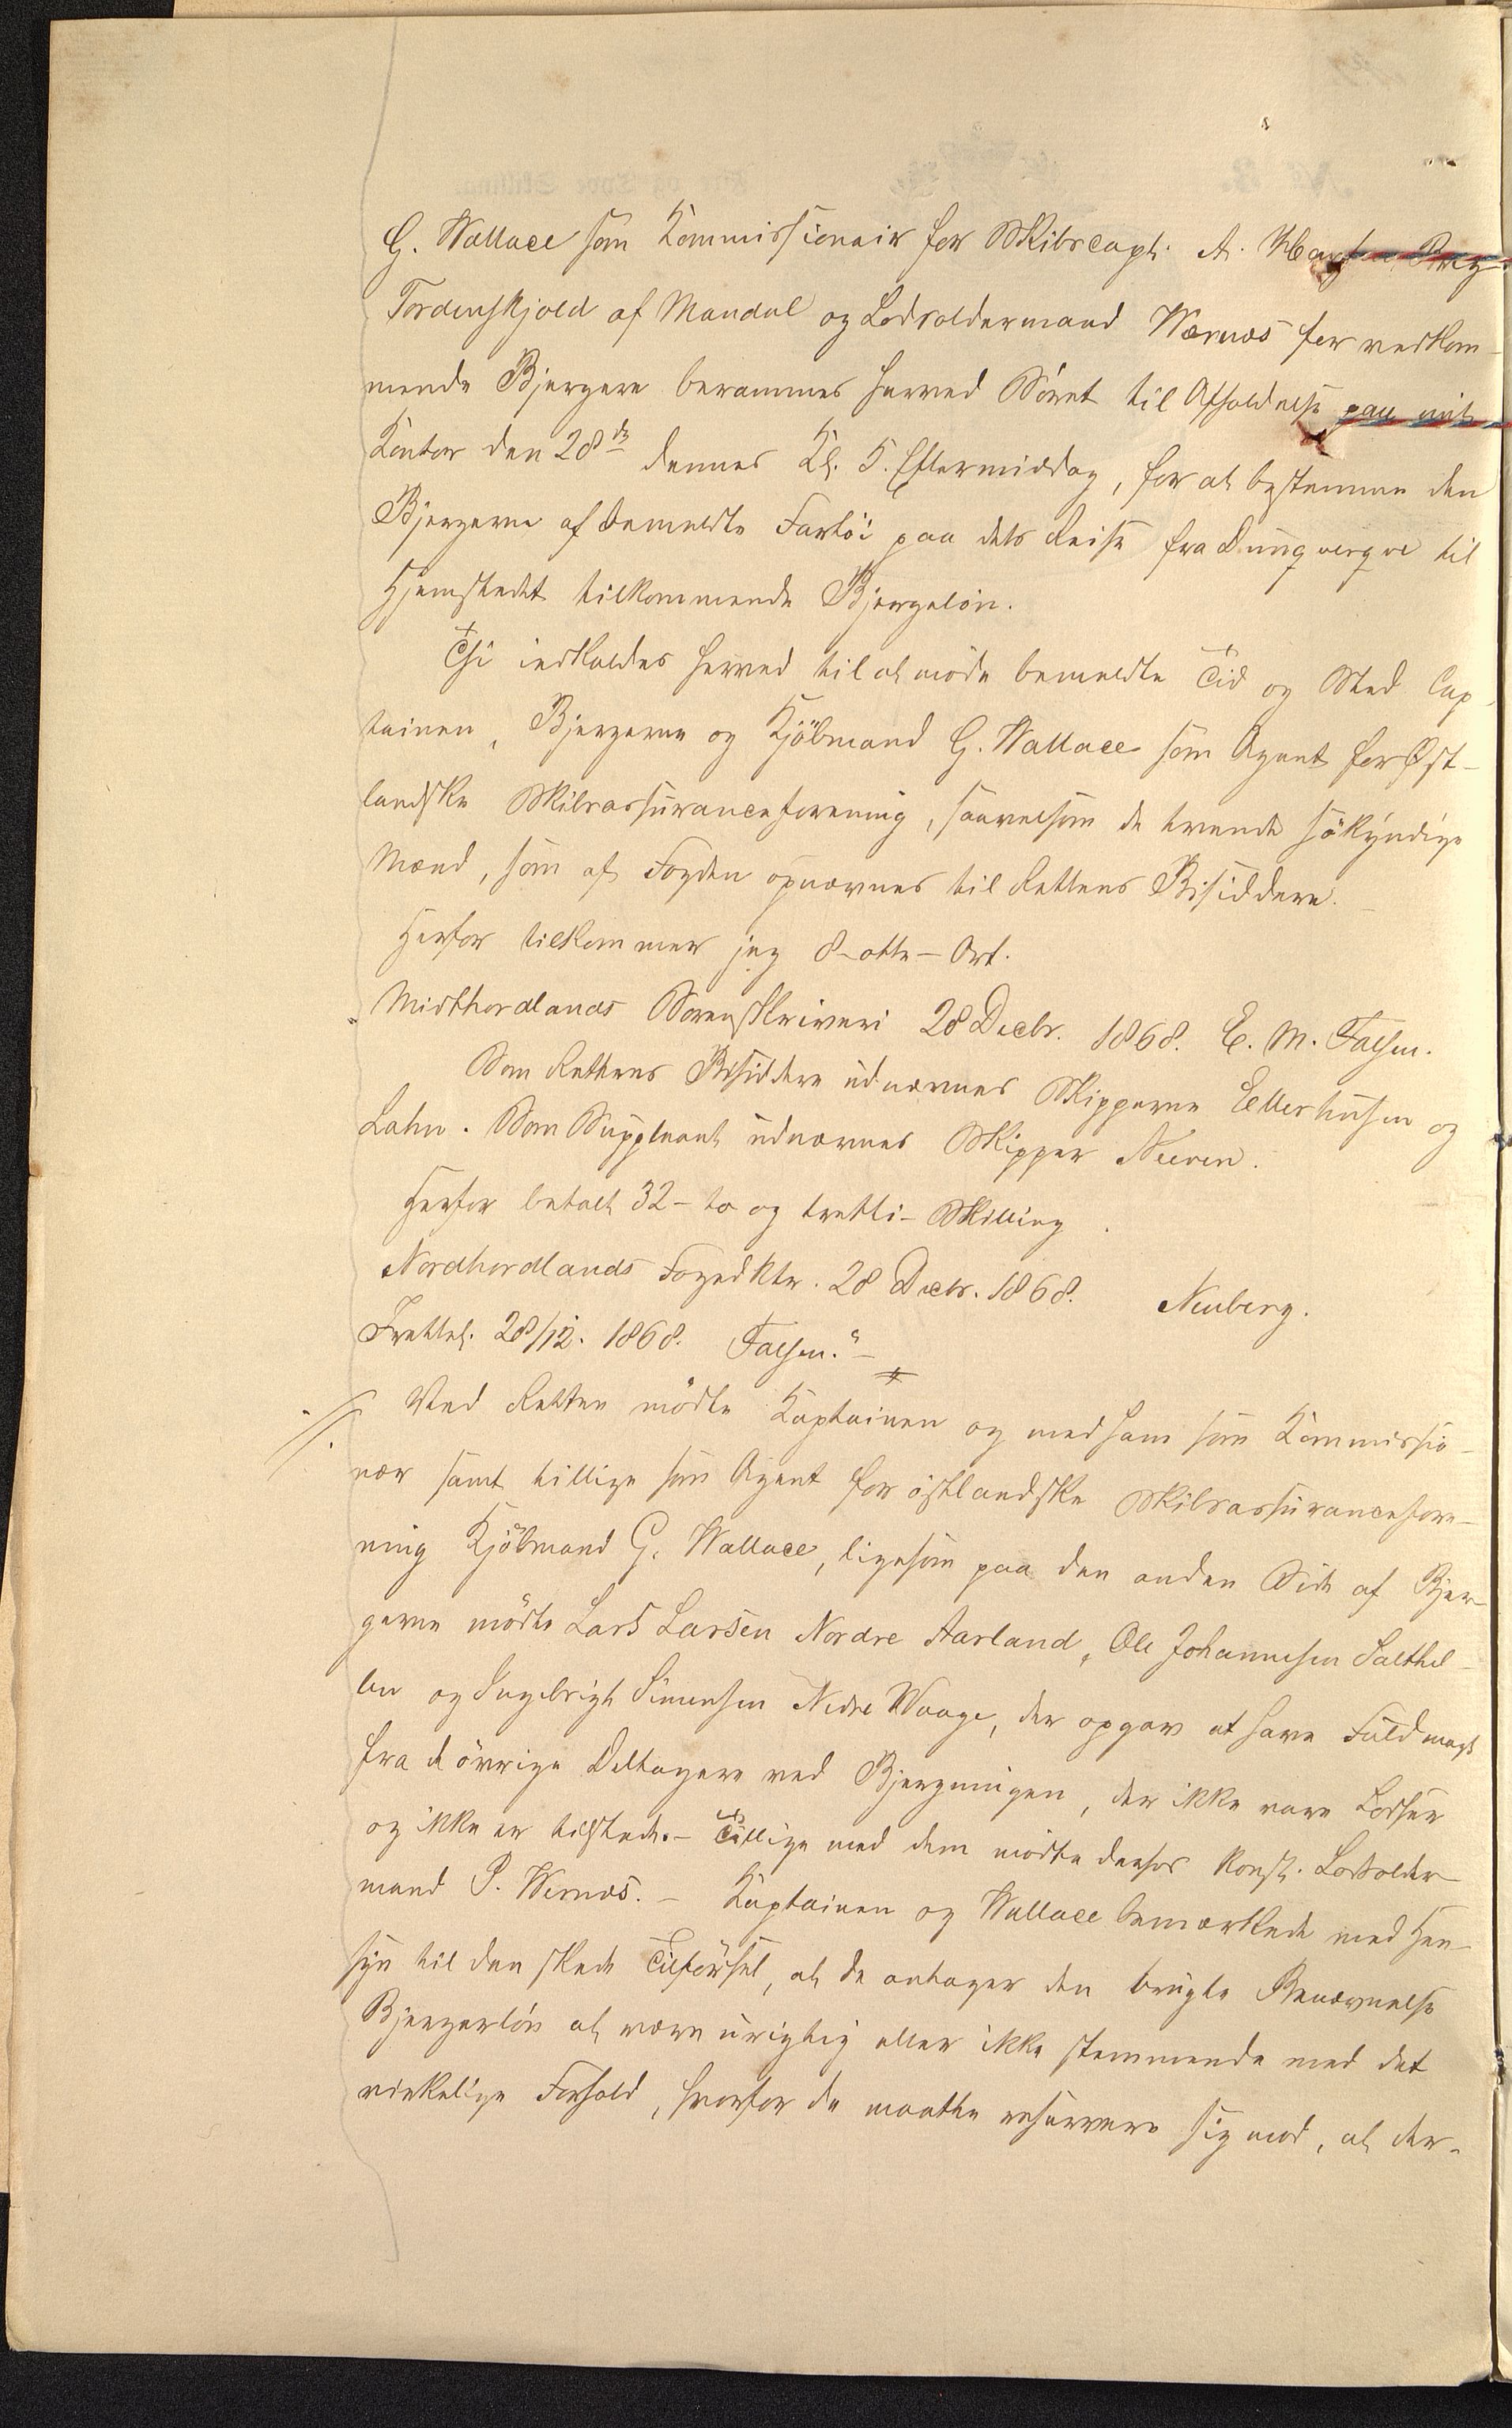 G. Wallace som Kommissionair for Skibscapt. A. Brig
Tordenskjold af Mandal og Lodsoldermand Wernøs for vedkom-
mende Bjergere berammes herved Søret til Afholdelse paa mit
Kontor den 28de dennes Kl. 5. Eftermiddag, for at bestemme den
Bjergerne af bemeldte Fartöi paa dets Reise fra Dunquerque til
Hjemstedet tilkommende Bjergelön.
Thi indkaldes herved til at møde bemeldte Tid og Sted Cap-
tainen, Bjergerne og Kjöbmand G. Wallace som Agent for Öst-
landske Skibsassuranceforening, saavelsom de tvende sökyndige
Mænd, som af Fogden opnævnes til Rettens Bisiddere.
Herfor tilkommer jeg 8 - otte - Ort.
Midthordlands Sorenskriveri 28 Decbr. 1868. E. M. Falsen.
Som Rettens Bisiddere udnævnes Skipperne Ellerhusen og
Lahn. Som Suppleant udnævnes Skipper Neeven.
Herfor betalt 32 - to og tretti - Skilling.
Nordhordlands Fogedktr. 28 Decbr. 1868. Neuberg.
Fretlæst 28/12. 1868. Falsen."-
//. Ved Retten mödte Kaptainen og med ham som Kommissio-
nær samt tillige som Agent for östlandske Skibsassurancefore-
ning Kjöbmand G. Wallace, ligesom paa den anden Side af Bjer-
gerne mödte Lars Larsen Nordre Aarland, Ole Johannesen Salthel-
len og Ingebrigt Simensen Nedre Waage, der opgav at have Fuldmagt
fra de övrige Deltagere ved Bjergningen, der ikke vare Lodser
og ikke er tilstede. - Tillige med dem mödte deres konst. Lodsolder-
mand P. Wernøs. - Kaptainen og Wallace bemærkede med Hen-
syn til den skede Tilförsel, at de antager den brugte Benævnelse
Bjergerlön at være urigtig eller ikke stemmende med det
virkelige Forhold, hvorfor de maatte reservere sig mod, at der-